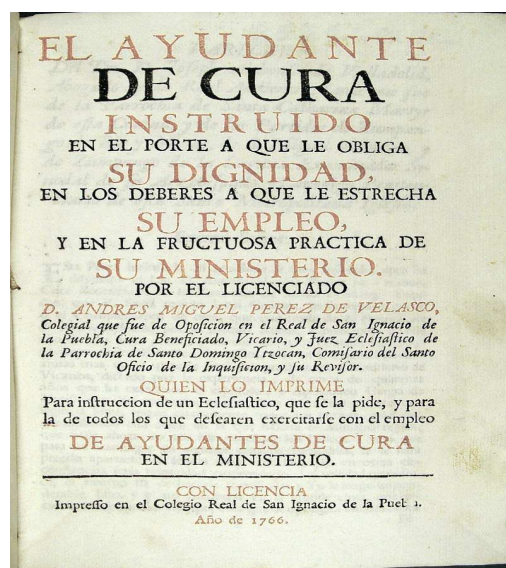 EL AYUDANTE
DE CURA
INSTRUIDO
EN EL PORTE A QUE LE OBLIGA
SU DIGNIDAD,
EN LOS DEBERES A QUE LE ESTRECHA
SU EMPLEO,
Y EN LA FRUCTUOSA PRACTICA DE
SU MINISTERIO.
POR EL LICENCIADO
D. ANDRES MIGUEL PEREZ DE VELASCO,
Colegial que fue de Opoſicion en el Real de San Ignacio de
la Puebla, Cura Beneficiado, Vicario, y Juez Ecleſiaſtico de
la Parrochia de Santo Domingo Ytzocan, Comiſario del Santo
Oficio de la Inquiſicion, y ſu Reviſor.
QUIEN LO IMPRIME
Para inſtruccion de un Ecleſiaſtico, que ſe la pide, y para
la de todos los que deſearen exercitarſe con el empleo
DE AYUDANTES DE CURA
EN EL MINISTERIO.
CON LICENCIA
Impreſſo en el Colegio Real de San Ignacio de la Puebla.
Año de 1766.